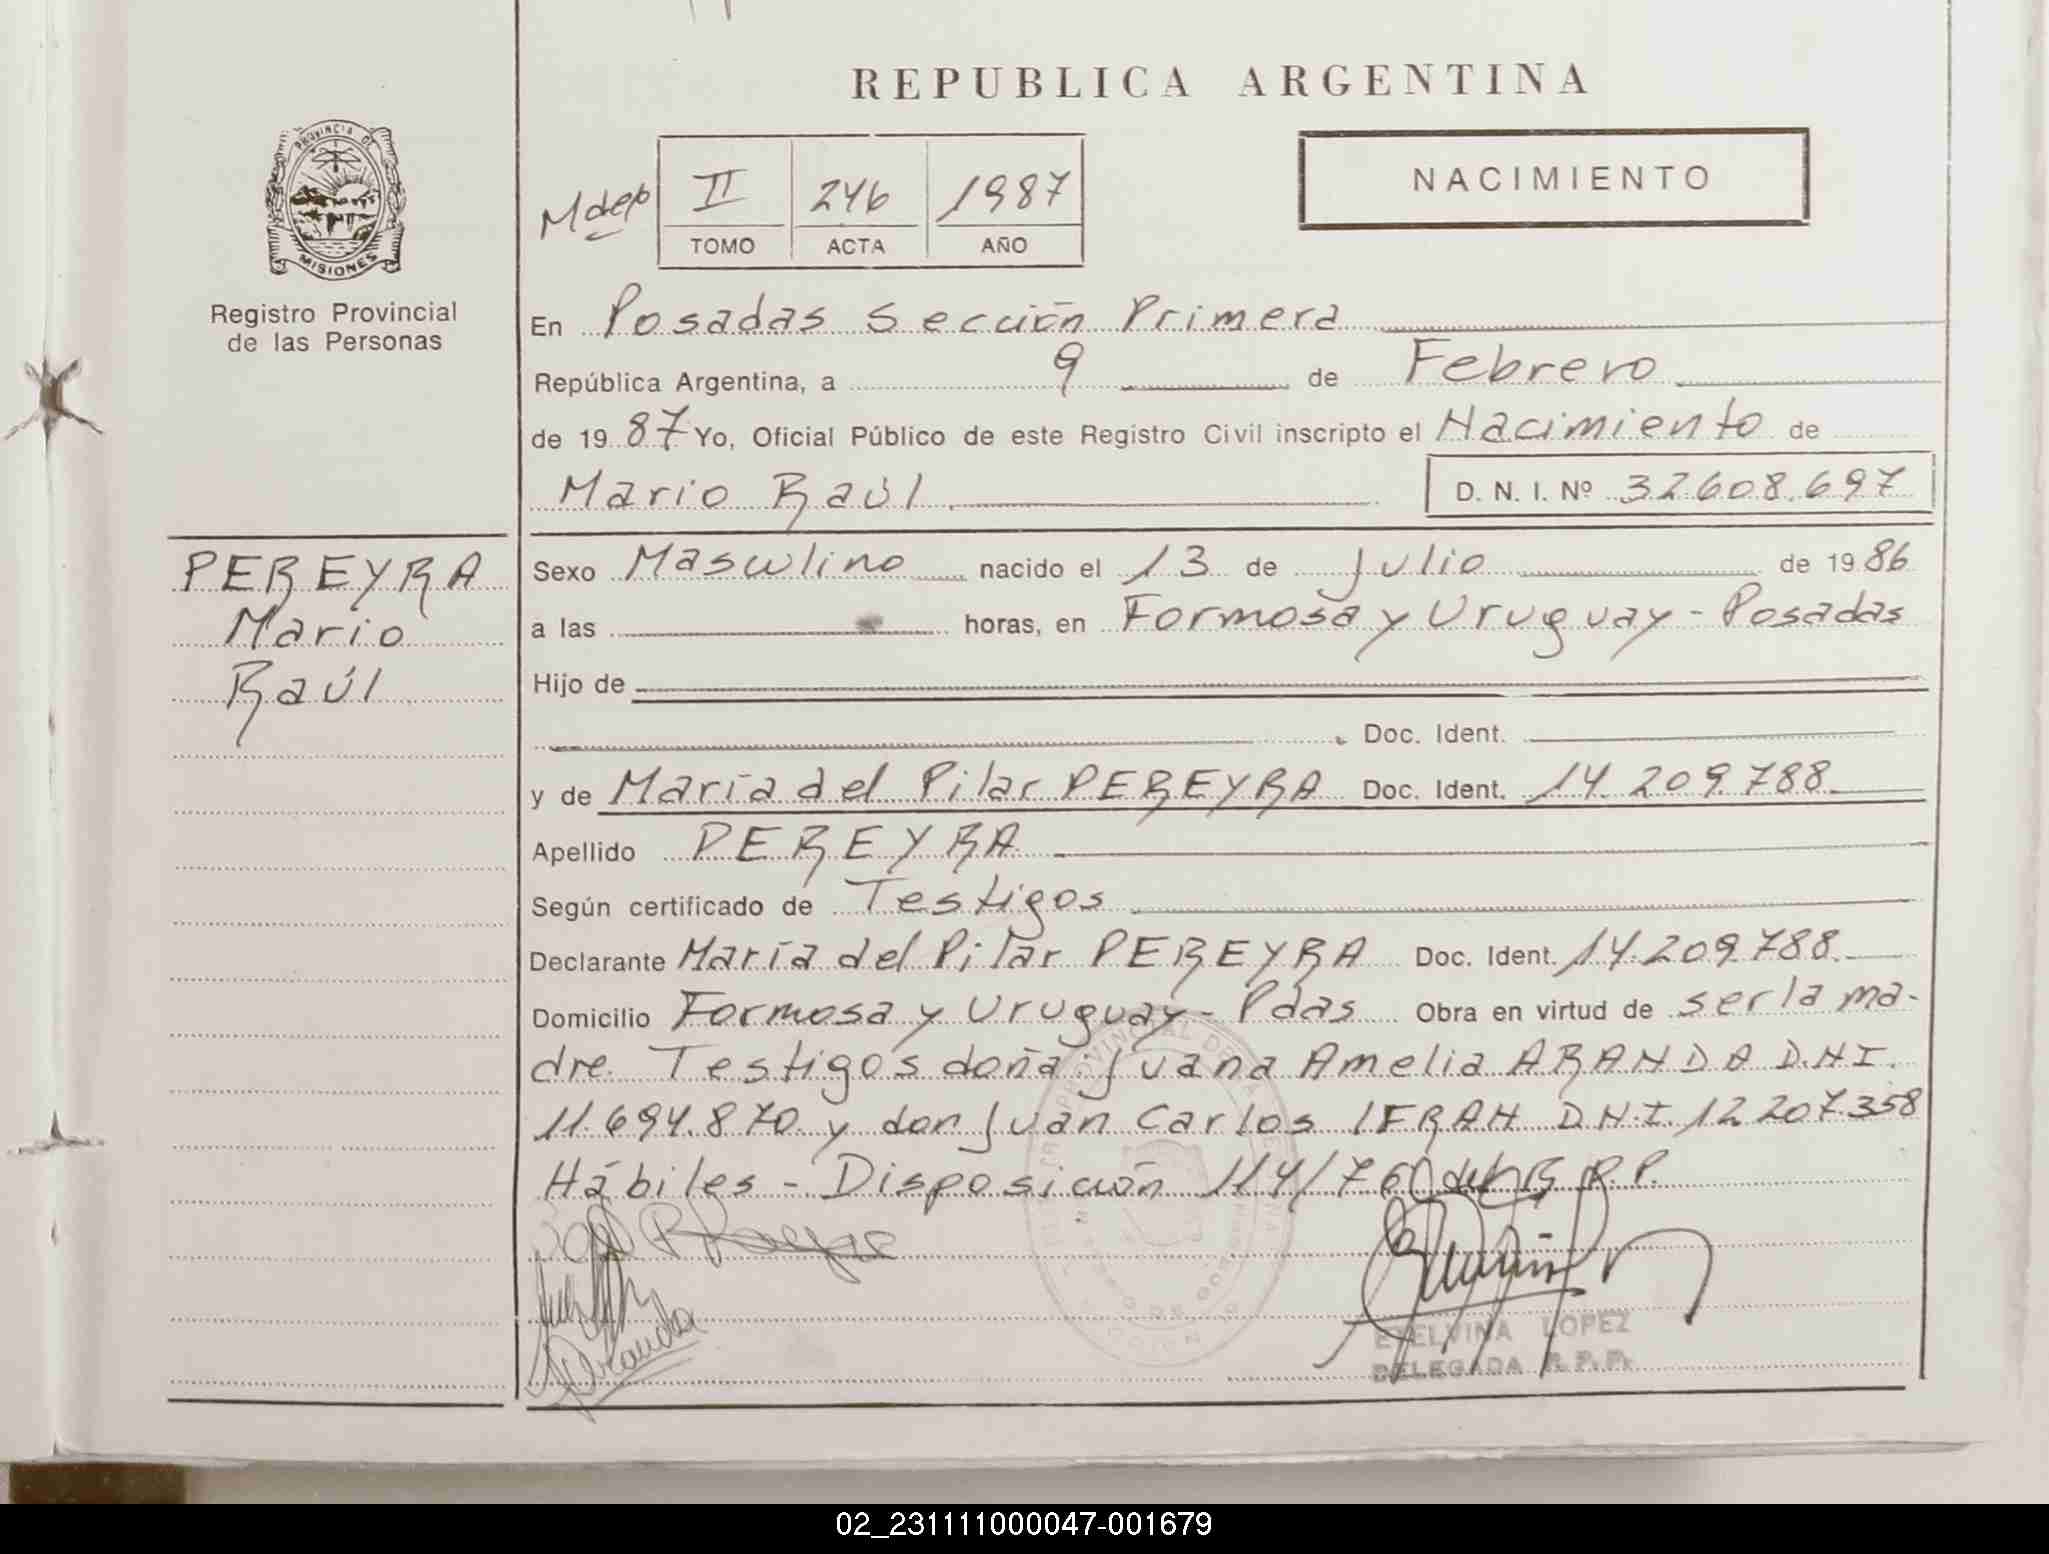 REPUBLICA ARGENTINA
PROVINCIA DE
MISIONES
Registro Provincial
de las Personas
NACIMIENTO
Mdep II 246 1987
TOMO ACTA AÑO
En Posadas Sección Primera
República Argentina, a 9 de Febrero
de 1987 Yo, Oficial Público de este Registro Civil inscripto el Nacimiento de
Mario Raúl D. N. I. Nº 32608.697
PEREYRA
Mario
Raúl
Sexo Masculino nacido el 13 de Julio de 1986
a las horas, en Formosa y Uruguay - Posadas
Hijo de
Doc. Ident.
y de María del Pilar PEREYRA Doc. Ident. 14.209.788.
Apellido PEREYRA
Según certificado de Testigos
Declarante María del Pilar PEREYRA Doc. Ident. 14.209.788.
Domicilio Formosa y Uruguay - Pdas Obra en virtud de ser la ma-
dre. Testigos doña: Juana Amelia ARANDA D.N.I.
11.694.870. y don Juan Carlos IFRAN D.N.I. 12.207.358
Hábiles - Disposición 114/76 del R.P.P.
ETELVINA LOPEZ
DELEGADA R.P.P.
02_231111000047-001679